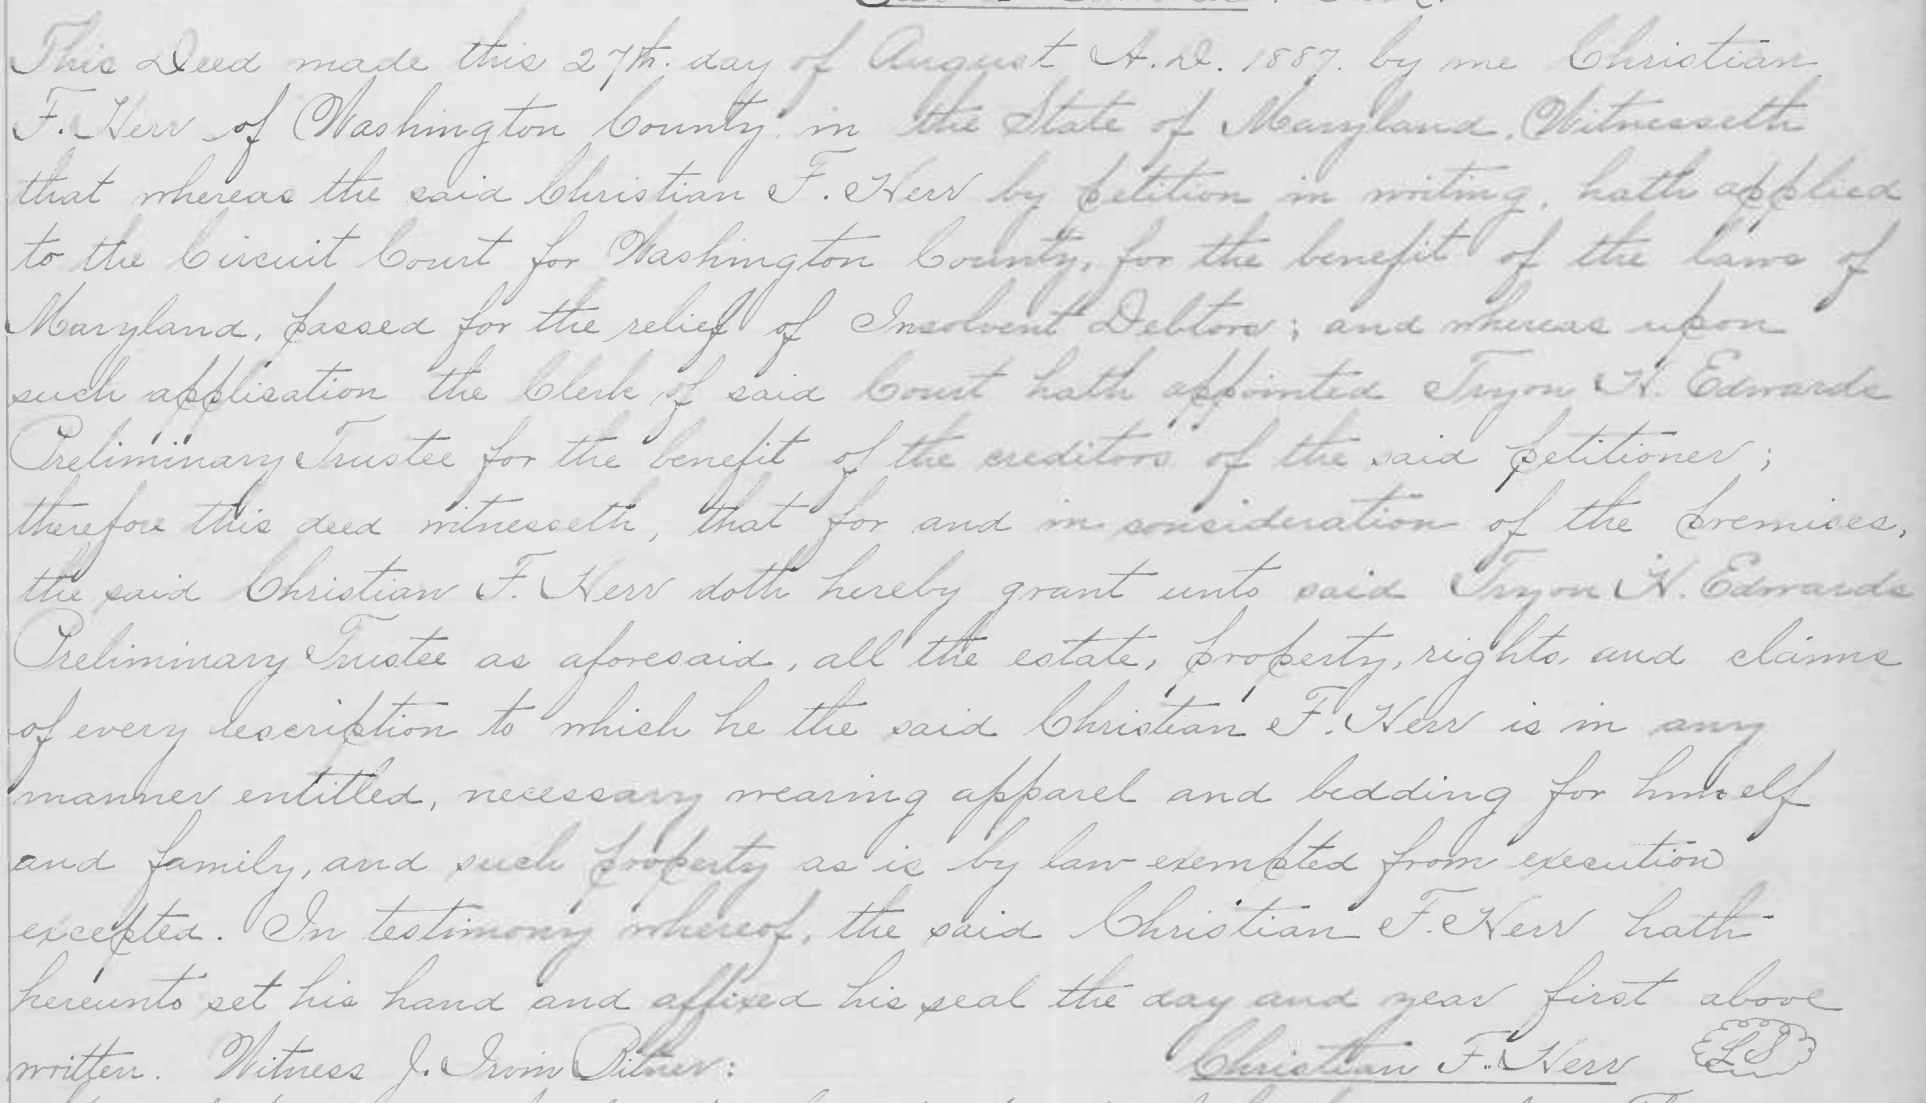 This Deed made this 27th. day of August A.D. 1887. by me Christian
F. Kerr of Washington County, in the State of Maryland, Witnesseth
that whereas the said Christian F. Kerr by petition in writing, hath applied
to the Circuit Court for Washington County, for the benefit of the laws of
Maryland, passed for the relief of Insolvent Debtors; and whereas upon
such application the Clerk of said Court hath appointed Tryon H. Edwards
Preliminary Trustee for the benefit of the creditors of the said petitioner;
therefore this deed witnesseth, that for and in consideration of the premises,
the said Christian F. Kerr doth hereby grant unto said Tryon H. Edwards
Preliminary Trustee as aforesaid, all the estate, property, rights and claims
of every description to which he the said Christian F. Kerr is in any
manner entitled, necessary wearing apparel and bedding for himself
and family, and such property as is by law exempted from execution
excepted. In testimony whereof, the said Christian F. Kerr hath
hereunto set his hand and affixed his seal the day and year first above
written. Witness J. Irvin Bitner: Christian F. Kerr LS